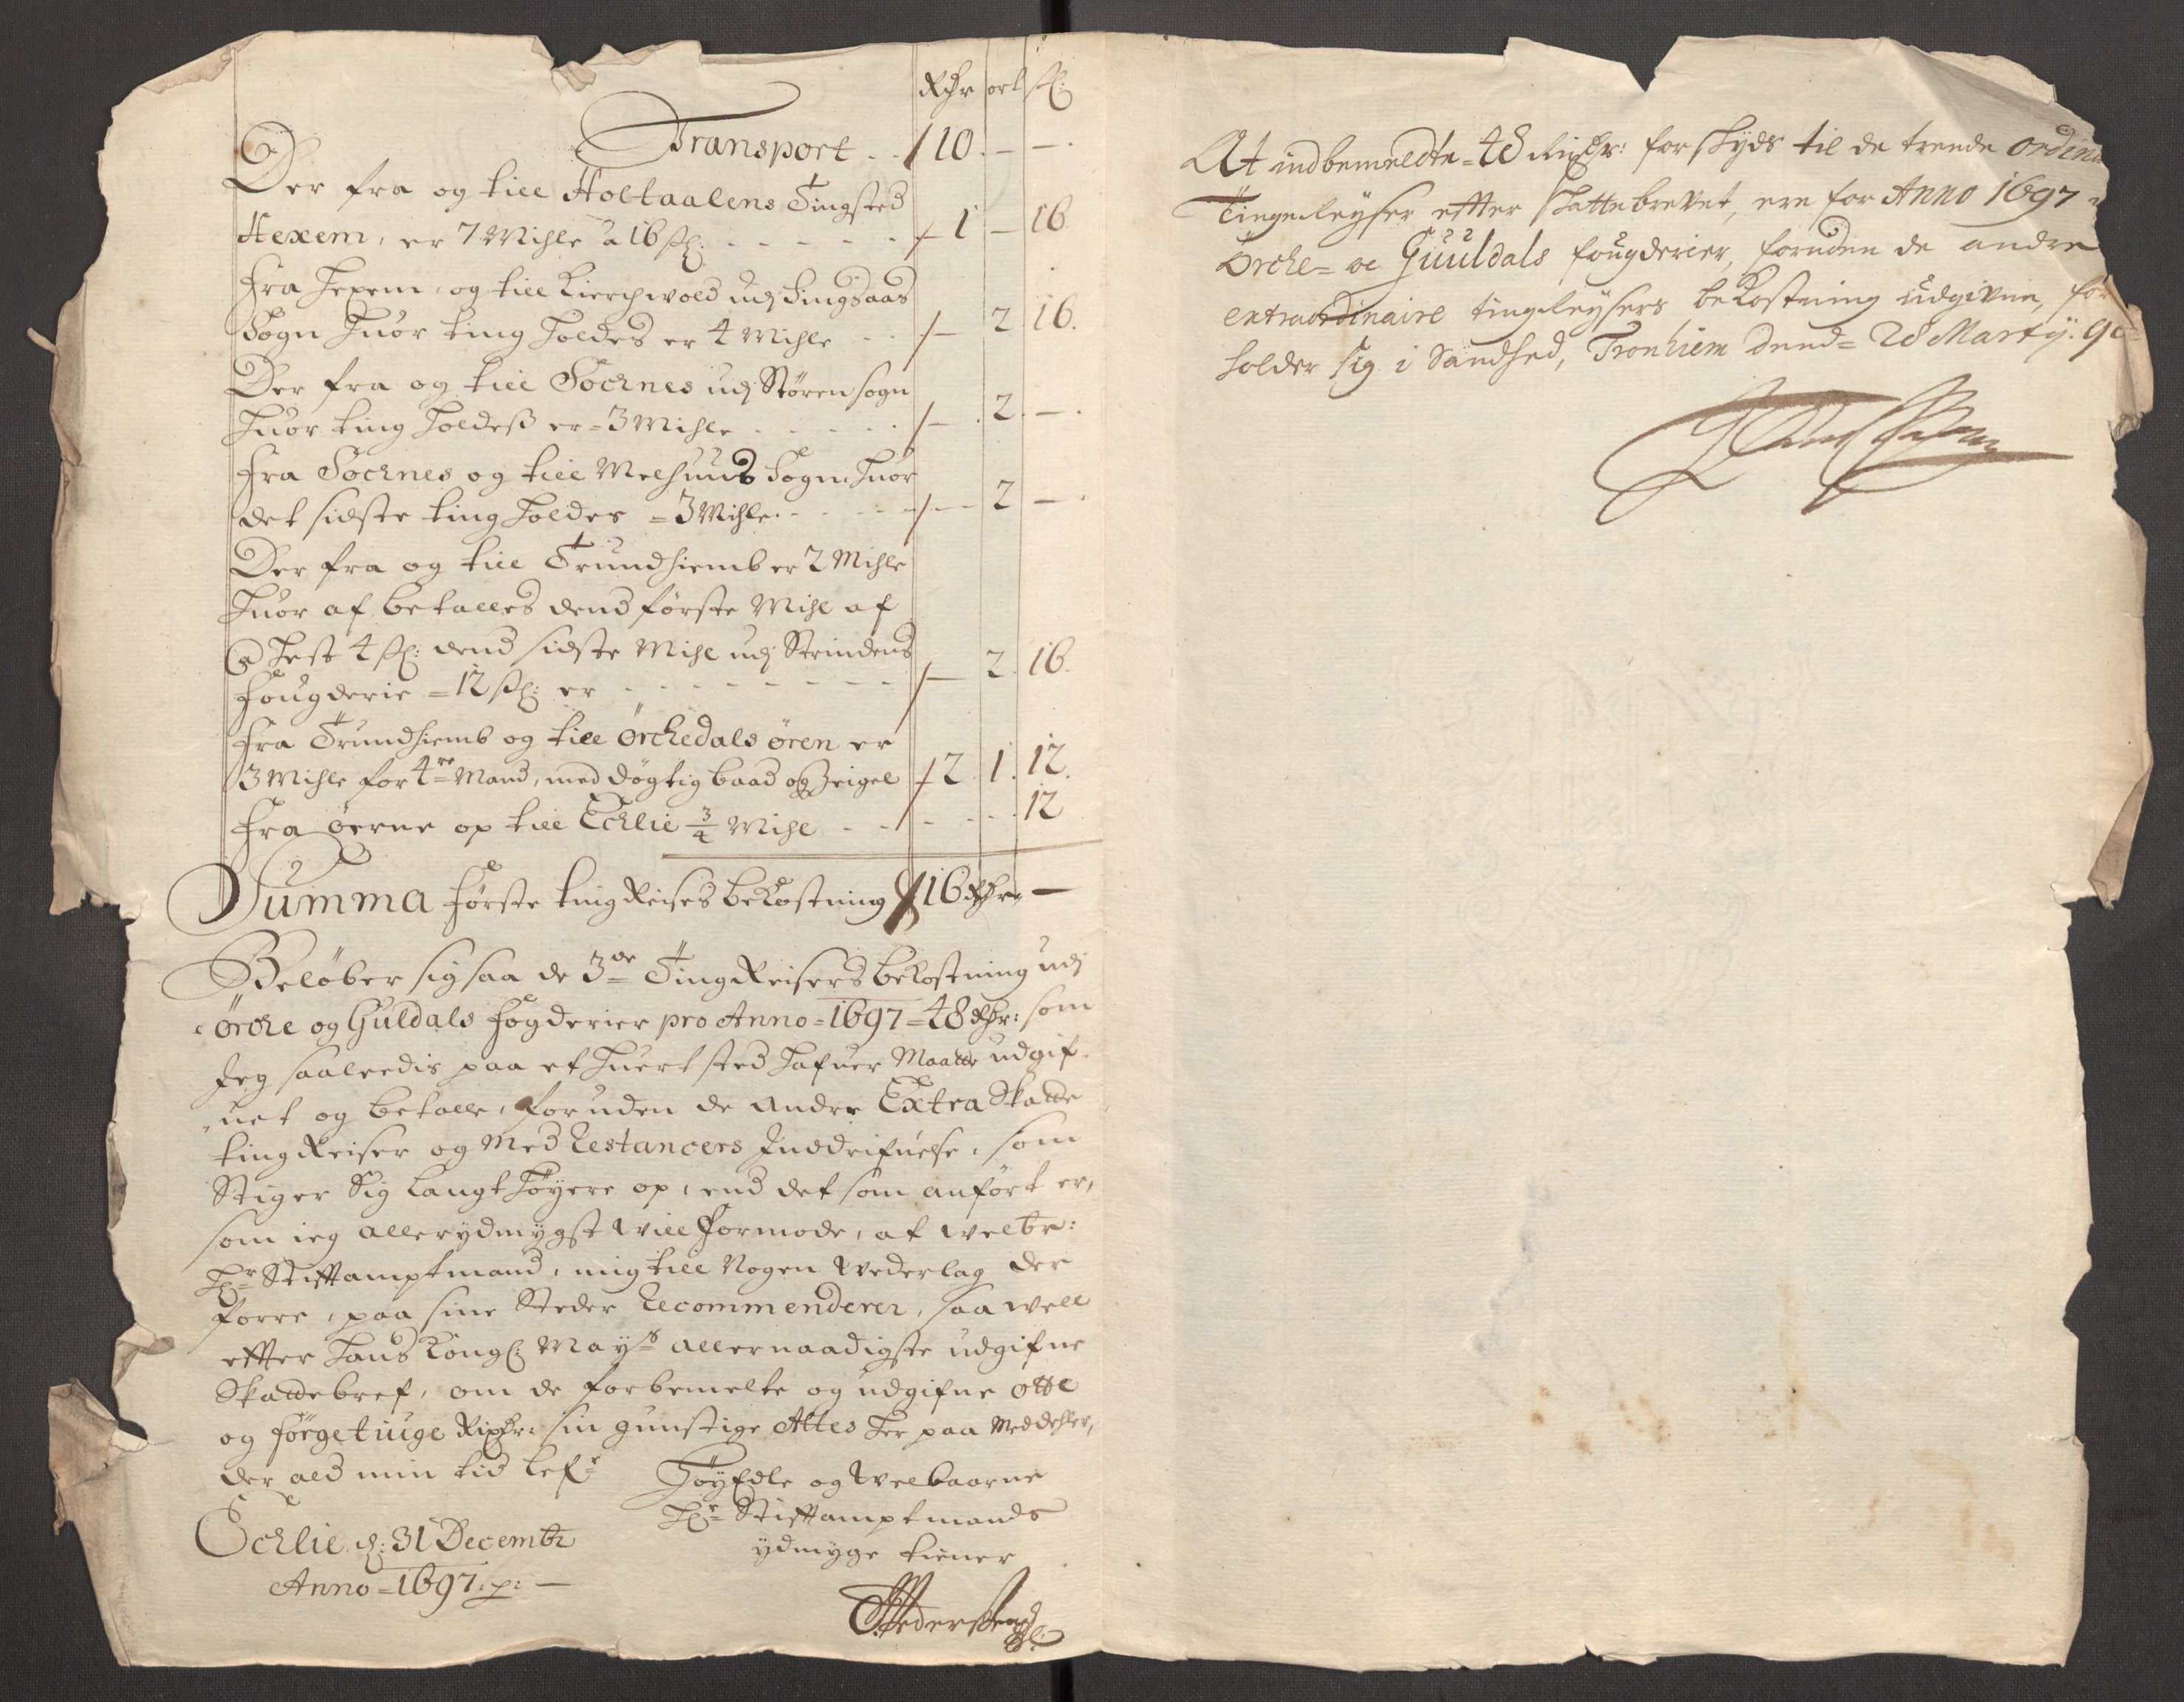 Rdr ort sk:
Transport . . 110. – – .
Der fra og till Holtaalens Tingsted
Hexem, er 7 Mihle a 16 sk: – 1 – 16
Fra Hexem, og till Kierchwold udj Singsaas
Sogn huor ting holdes er 4 Mihle – 2 16.
Der fra og till Sochnes udj Stören sogn
huor ting holdeß er = 3 Mihle – . 2. – .
Fra Sochnes og till Melhuus Sogn huor
det sidste ting holdes = 3 Mihle. – 2 – .
Der fra og till Trundhiemb er 2 Mihle
huor af betalles dend förste Mihl af
@ hest 4 sk: dend sidste Mihl udj Strindens
fougderie = 12 sk: er – 2. 16.
Fra Trundhiemb og till örchedals ören er
3 Mihle for 4re Mand, med dögtig baad og Zeigel 2 1. 12.
Fra öerne op till Echlie 3/4 Mihl 12
Summa förste ting Reises bekostning 16 Rdr. –
Belöber sig saa de 3de Ting Reisers bekostning udj
örche og Guldals fogderier pro Anno = 1697 = 48 Rdr: som
Jeg saaleedis paa et huert sted hafuer Maatte udgif-
uet og betalle, foruden de andre Extra Skatte
ting Reiser og med Restancers Inddrifuelse, som
Stiger Sig langt höyere op, end det som anfört er,
som ieg allerydmygst will formode, at welbr:
Hr Stiftamptmand, mig till Nogen Wederlag der
forre, paa sine Steder Recommenderer, saa well
effter Hans Kongl: Mayts allernaadigste udgifne
Skattebref, om de forbemelte og udgifne otte
og förgetiuge Rixdr: sin gunstige Attes her paa Meddehler,
der ald min tid lefr
Höy Edle og Welbaarne
Hr Stiftamptmands
ydmyge tiener
Echlie. d: 31 Decembr
Anno = 1697. p: –
At indbemeldte = 48 Rixdr: for skyds til de trende ordin
Tingreyser effter skattebrevet, ere for Anno 1697
Örche- oc Guuldals fougderier, foruden de andre
extraordinaire tingreysers bekostning udgivne, for
holder sig i Sandhed, Tronhiem dend = 28 Martij. 98